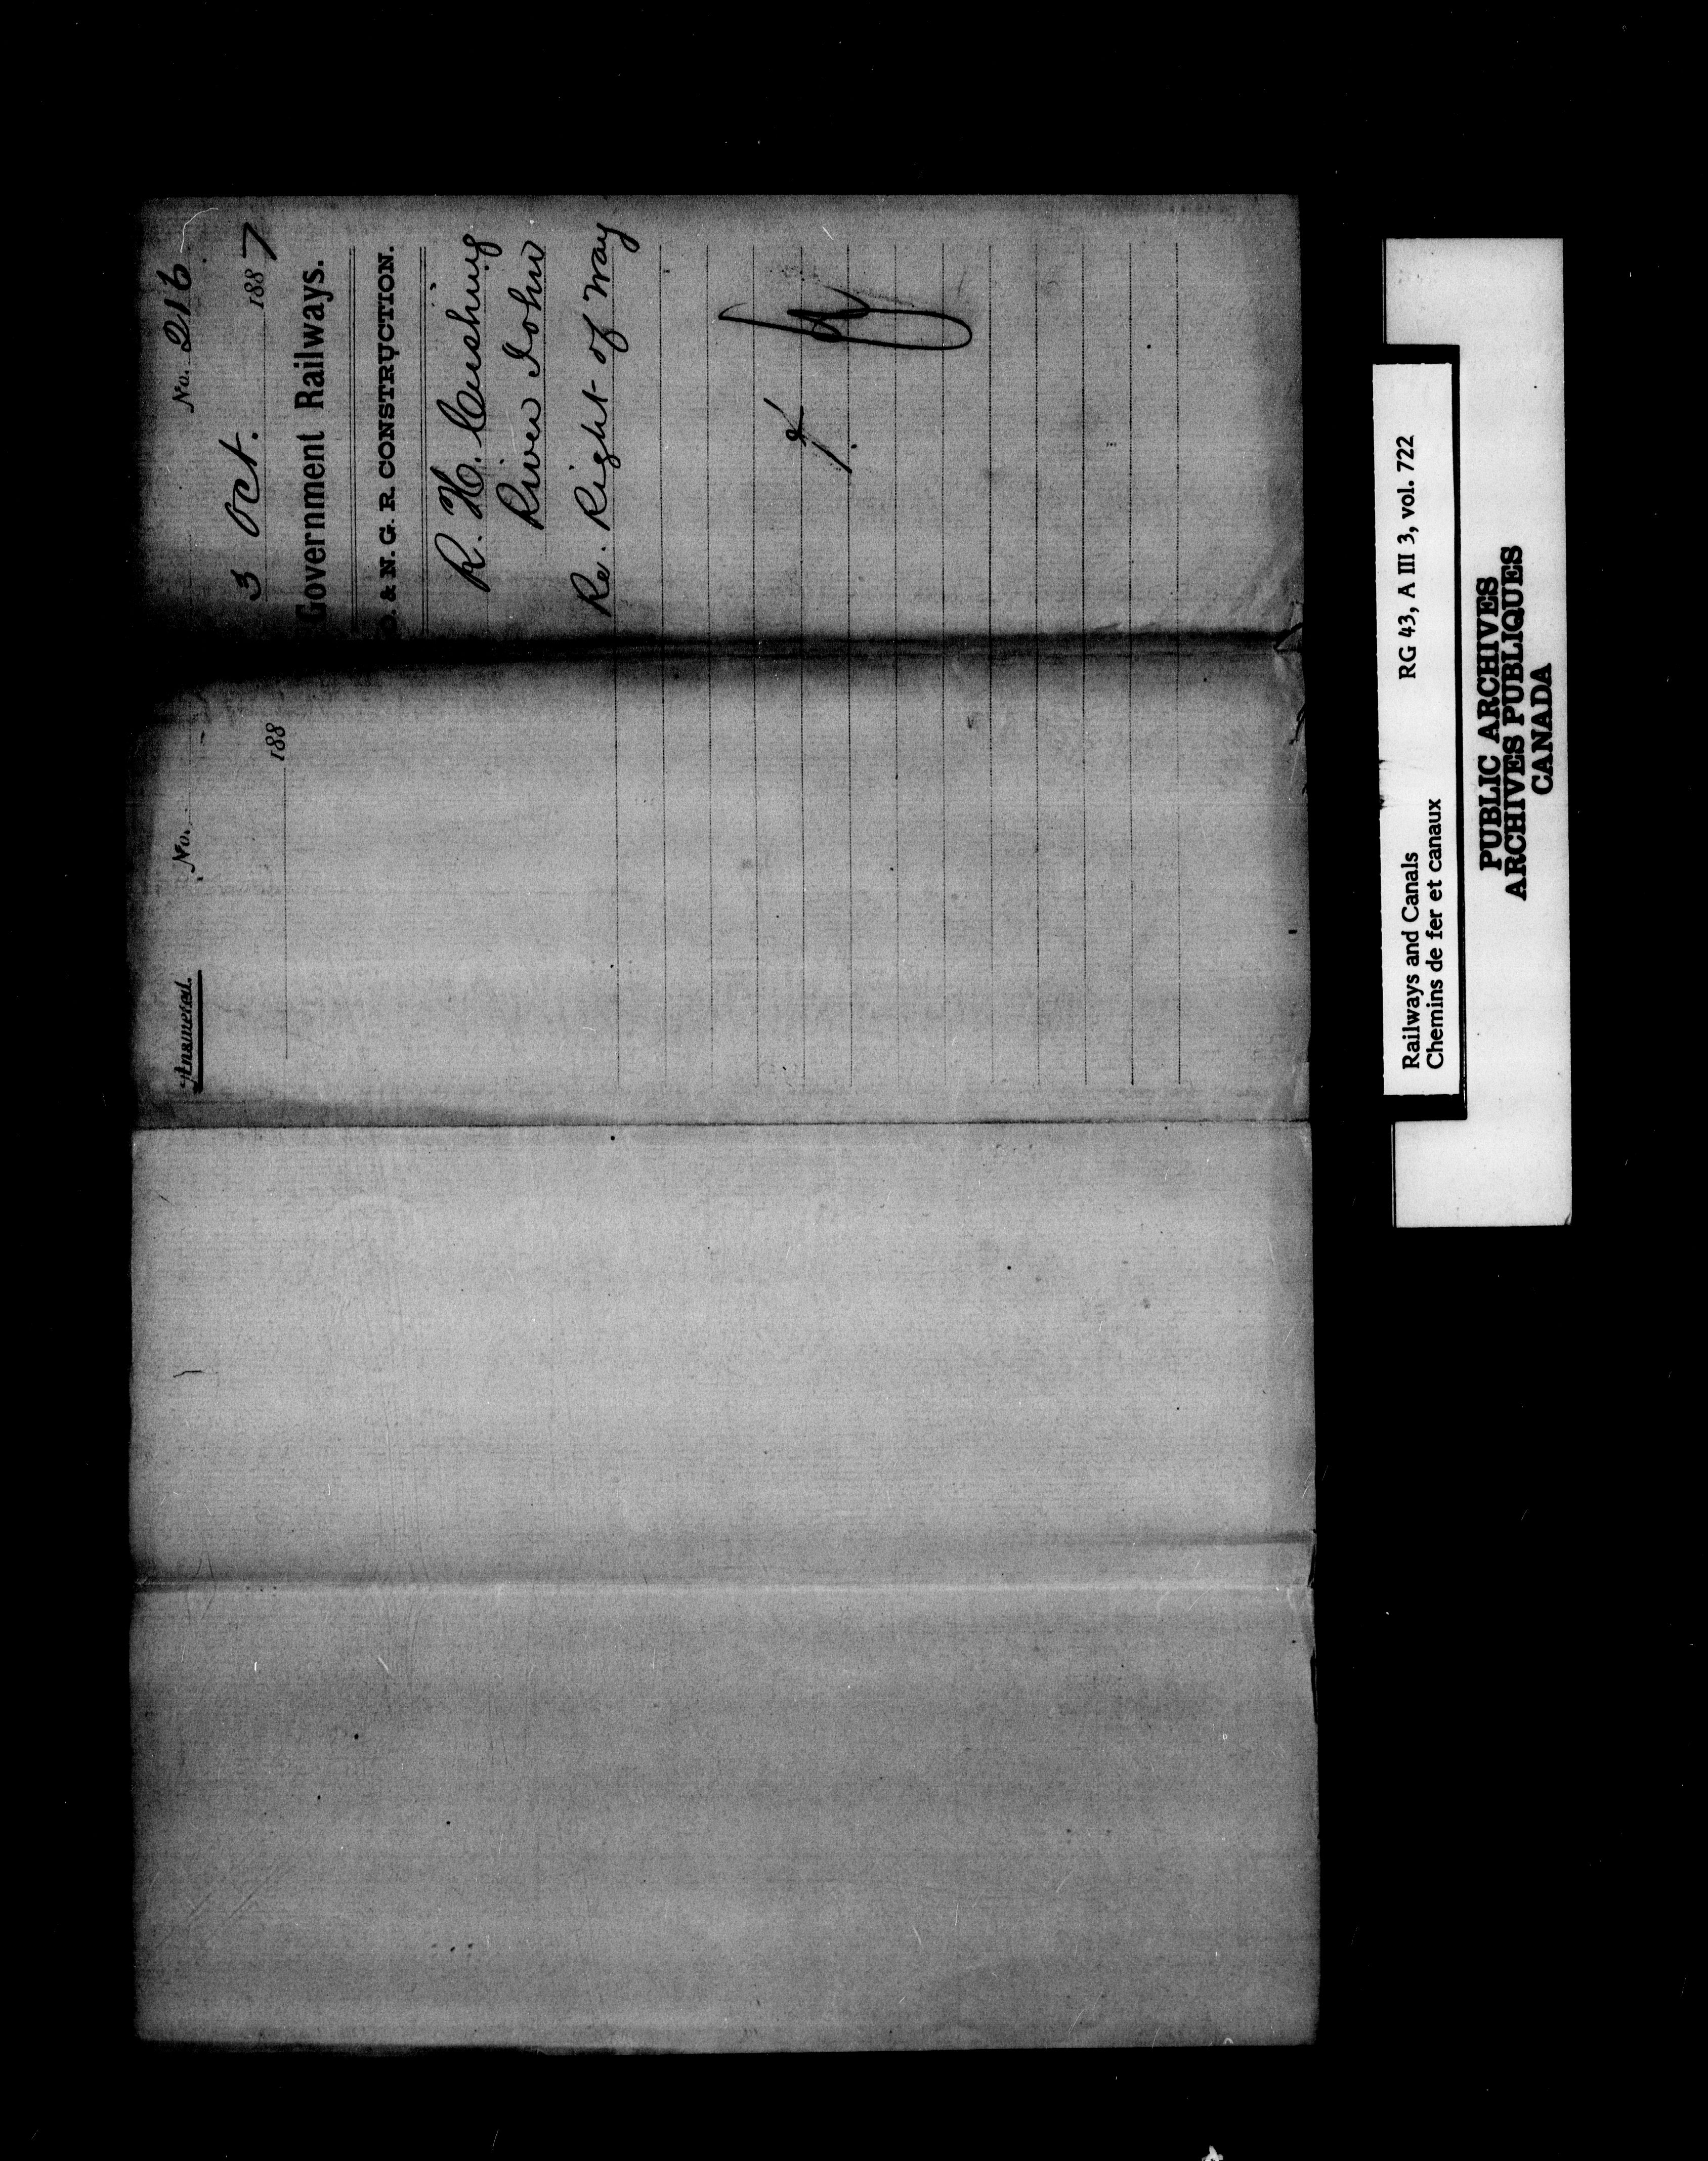 No. 216
3 Oct. 1887
Government Railways.
O. & N. G. R. CONSTRUCTION.
R. H. Cushing
River John
Re. Right of Way
Answered.
No.
188
Railways and Canals
Chemins de fer et canaux
RG 43, A III 3, vol. 722
PUBLIC ARCHIVES
ARCHIVES PUBLIQUES
CANADA